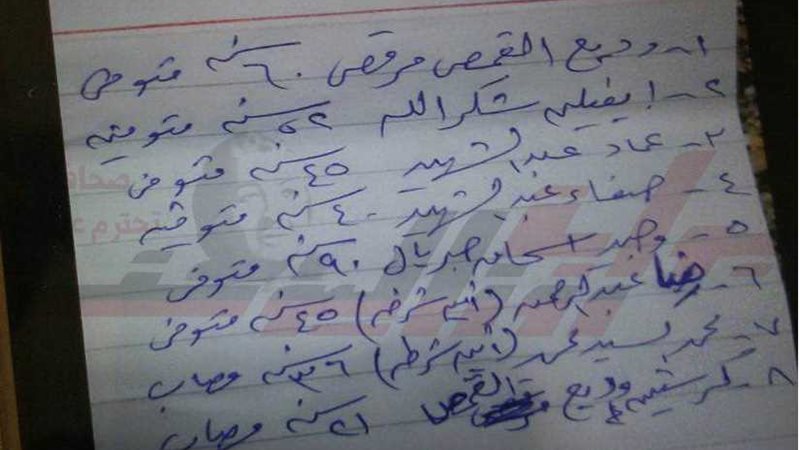 ١- وديع القمص مرقص ٦٠ سنة متوفى
٢- ايفيلين شكرالله ٥٢ سنة متوفيه
٣- عماد عبد الشهيد ٤٥ سنة متوفى
٤- صفاء عبد الشهيد ٤٠ سنة متوفيه
٥- وجيه اسحاق جبريال ٩٠ سنة متوفى
٦- رضا عبد الرحمن (أمين شرطه) ٤٥ سنة متوفى
٧- محمد السيد محمد (أمين شرطه) ٣٦ سنة مصاب
٨- كرستين وديع القمص ٢١ سنة مصاب
صحافة
تحترم